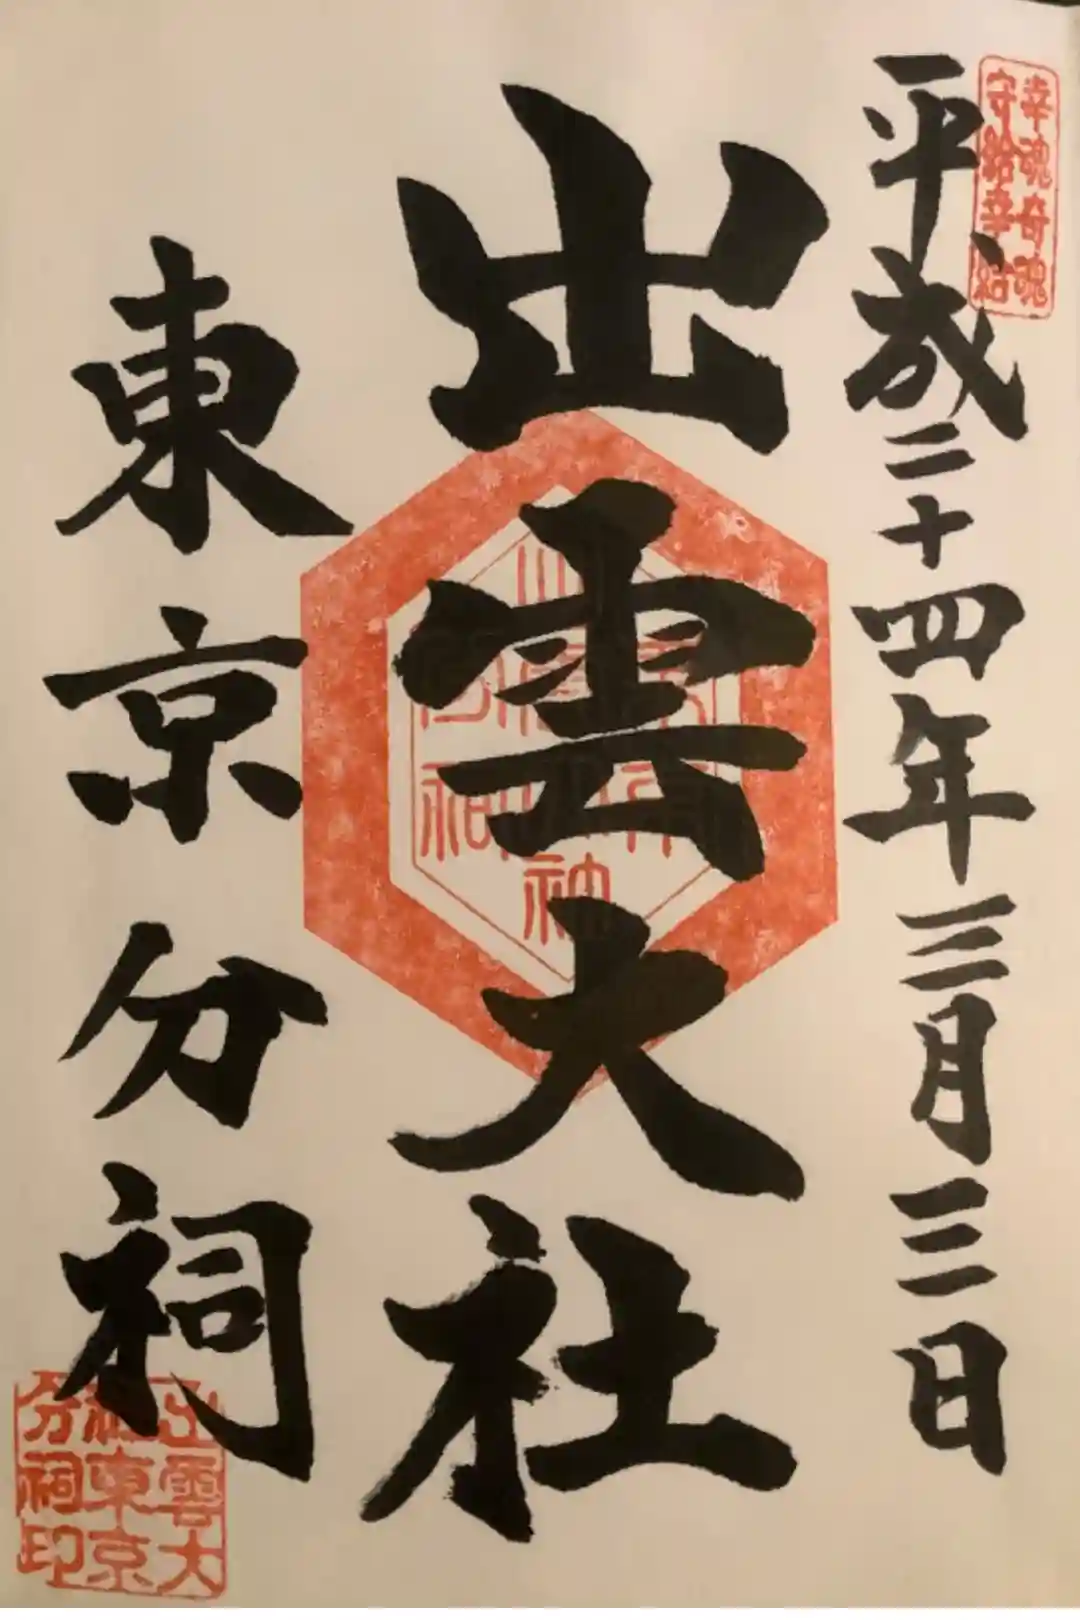 幸魂奇魂
守給幸給
平成二十四年三月三日
出雲大社
東京分祠
神
出雲大
社東京
分祠印